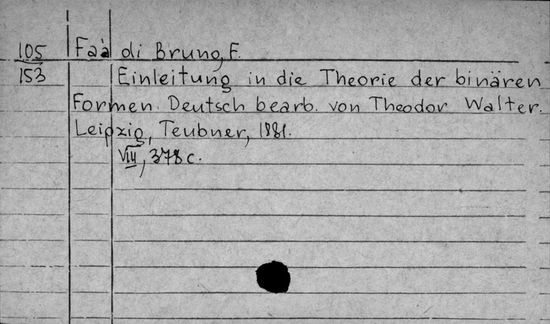 105 Faà di Bruno, F.
153 Einleitung in die Theorie der binären
Formen. Deutsch bearb. von Theodor Walter.
Leipzig, Teubner, 1881.
VIII, 378 c.